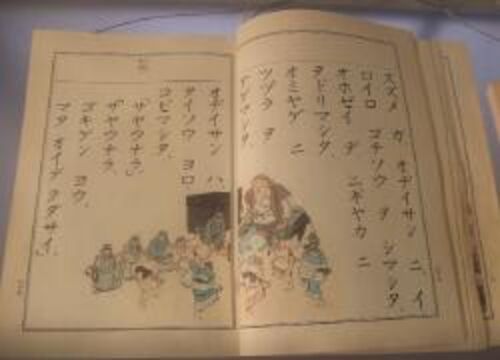 スズメ ガ オヂイサン ニ、イ
ロイロ ゴチソウ ヲ シマシタ。
オホゼイ デ ニギヤカ ニ
ヲドリマシタ。
オミヤゲ ニ
ツヅラ ヲ
アゲマシタ。
オヂイサン ハ、
タイソウ ヨロ
コビマシタ。
「サヤウナラ。」
「サヤウナラ、
ゴキゲン ヨウ。
マタ オイデ クダサイ。」